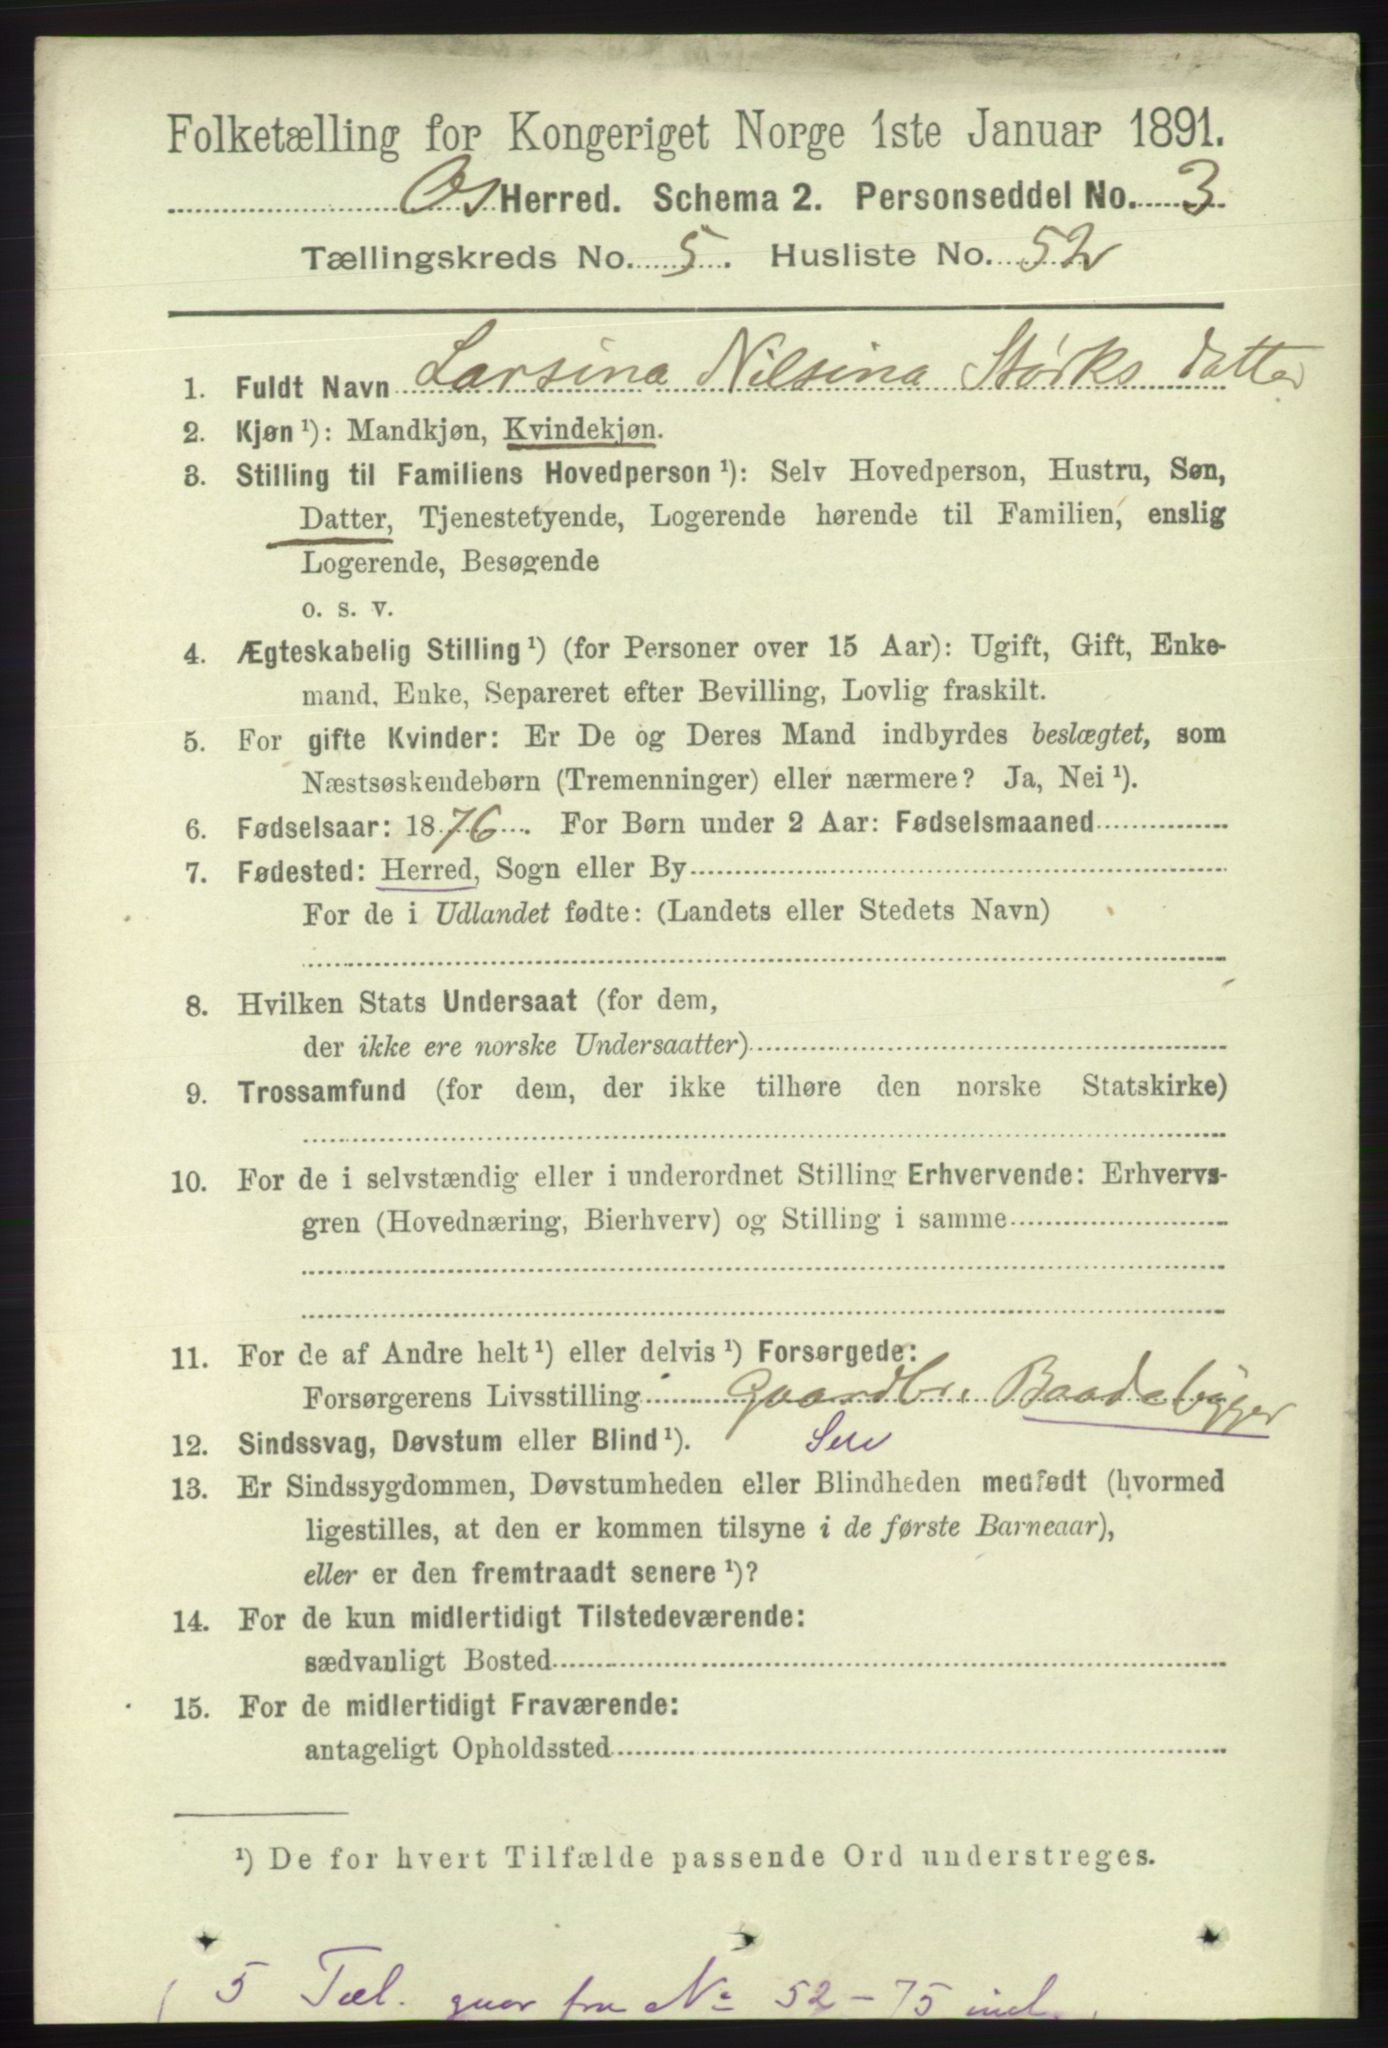 Folketælling for Kongeriget Norge 1ste Januar 1891.
Os Herred. Schema 2. Personseddel No. 3
Tællingskreds No. 5. Husliste No. 52
1. Fuldt Navn Larsina Nilsina Størksdatter
2. Kjøn ¹): Mandkjøn, Kvindekjøn.
3. Stilling til Familiens Hovedperson ¹): Selv Hovedperson, Hustru, Søn,
Datter, Tjenestetyende, Logerende hørende til Familien, enslig
Logerende, Besøgende
o. s. v.
4. Ægteskabelig Stilling ¹) (for Personer over 15 Aar): Ugift, Gift, Enke-
mand, Enke, Separeret efter Bevilling, Lovlig fraskilt.
5. For gifte Kvinder: Er De og Deres Mand indbyrdes beslægtet, som
Næstsøskendebørn (Tremenninger) eller nærmere? Ja, Nei ¹).
6. Fødselsaar: 1876. For Børn under 2 Aar: Fødselsmaaned
7. Fødested: Herred, Sogn eller By
For de i Udlandet fødte: (Landets eller Stedets Navn)
8. Hvilken Stats Undersaat (for dem,
der ikke ere norske Undersaatter)
9. Trossamfund (for dem, der ikke tilhøre den norske Statskirke)
10. For de i selvstændig eller i underordnet Stilling Erhvervende: Erhvervs-
gren (Hovednæring, Bierhverv) og Stilling i samme
11. For de af Andre helt ¹) eller delvis ¹) Forsørgede:
Forsørgerens Livsstilling Gaardbr. Baadebygger
12. Sindssvag, Døvstum eller Blind ¹).
13. Er Sindssygdommen, Døvstumheden eller Blindheden medfødt (hvormed
ligestilles, at den er kommen tilsyne i de første Barneaar),
eller er den fremtraadt senere ¹)?
14. For de kun midlertidigt Tilstedeværende:
sædvanligt Bosted
15. For de midlertidigt Fraværende:
antageligt Opholdssted
¹) De for hvert Tilfælde passende Ord understreges.
5 Tæl. gaar fra No 52-75 incl.